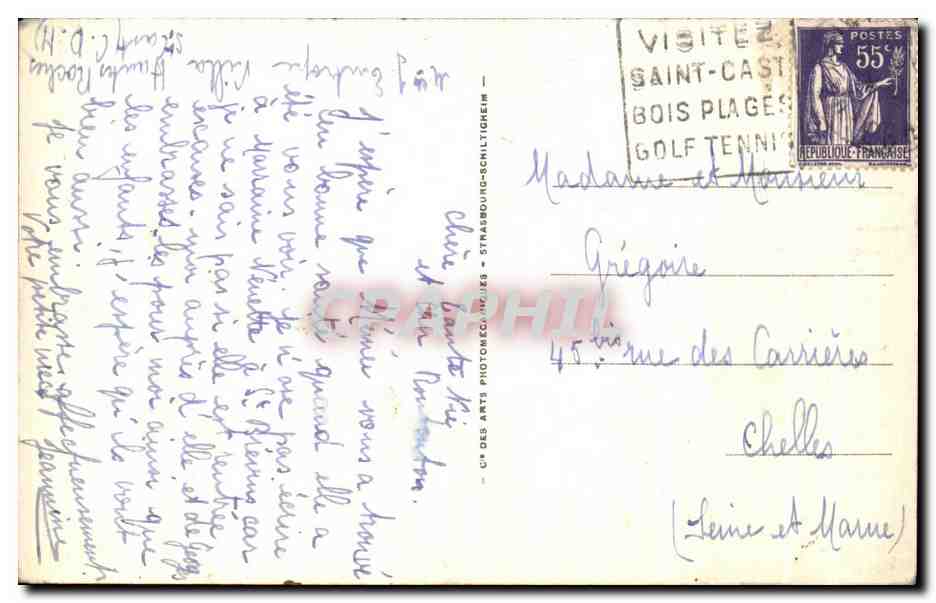 VISITEZ
SAINT-CAST
BOIS PLAGES
GOLF TENNIS
POSTES
55c
RÉPUBLIQUE FRANÇAISE
Madame et Monsieur
Grégoire
45 bis rue des Carrières
Chelles
(Seine et Marne)
Cie DES ARTS PHOTOMÉCANIQUES - STRASBOURG-SCHILTIGHEIM
CRAPHIL
Villa
Hautes Roches
St Cast (C. D. N)
chère tante
et
J'espère que Mémée vous a trouvé
en bonne santé quand elle a
été vous voir. Je n'ose pas écrire
à Marraine Nénette à St Brévins car
je ne sais pas si elle est rentrée
excuses-moi auprès d'elle et de Georges
embrasses-les pour moi ainsi que
les enfants, j'espère qu'ils vont
bien aussi.
Je vous embrasse affectueusement.
Votre petite nièce Jeannine